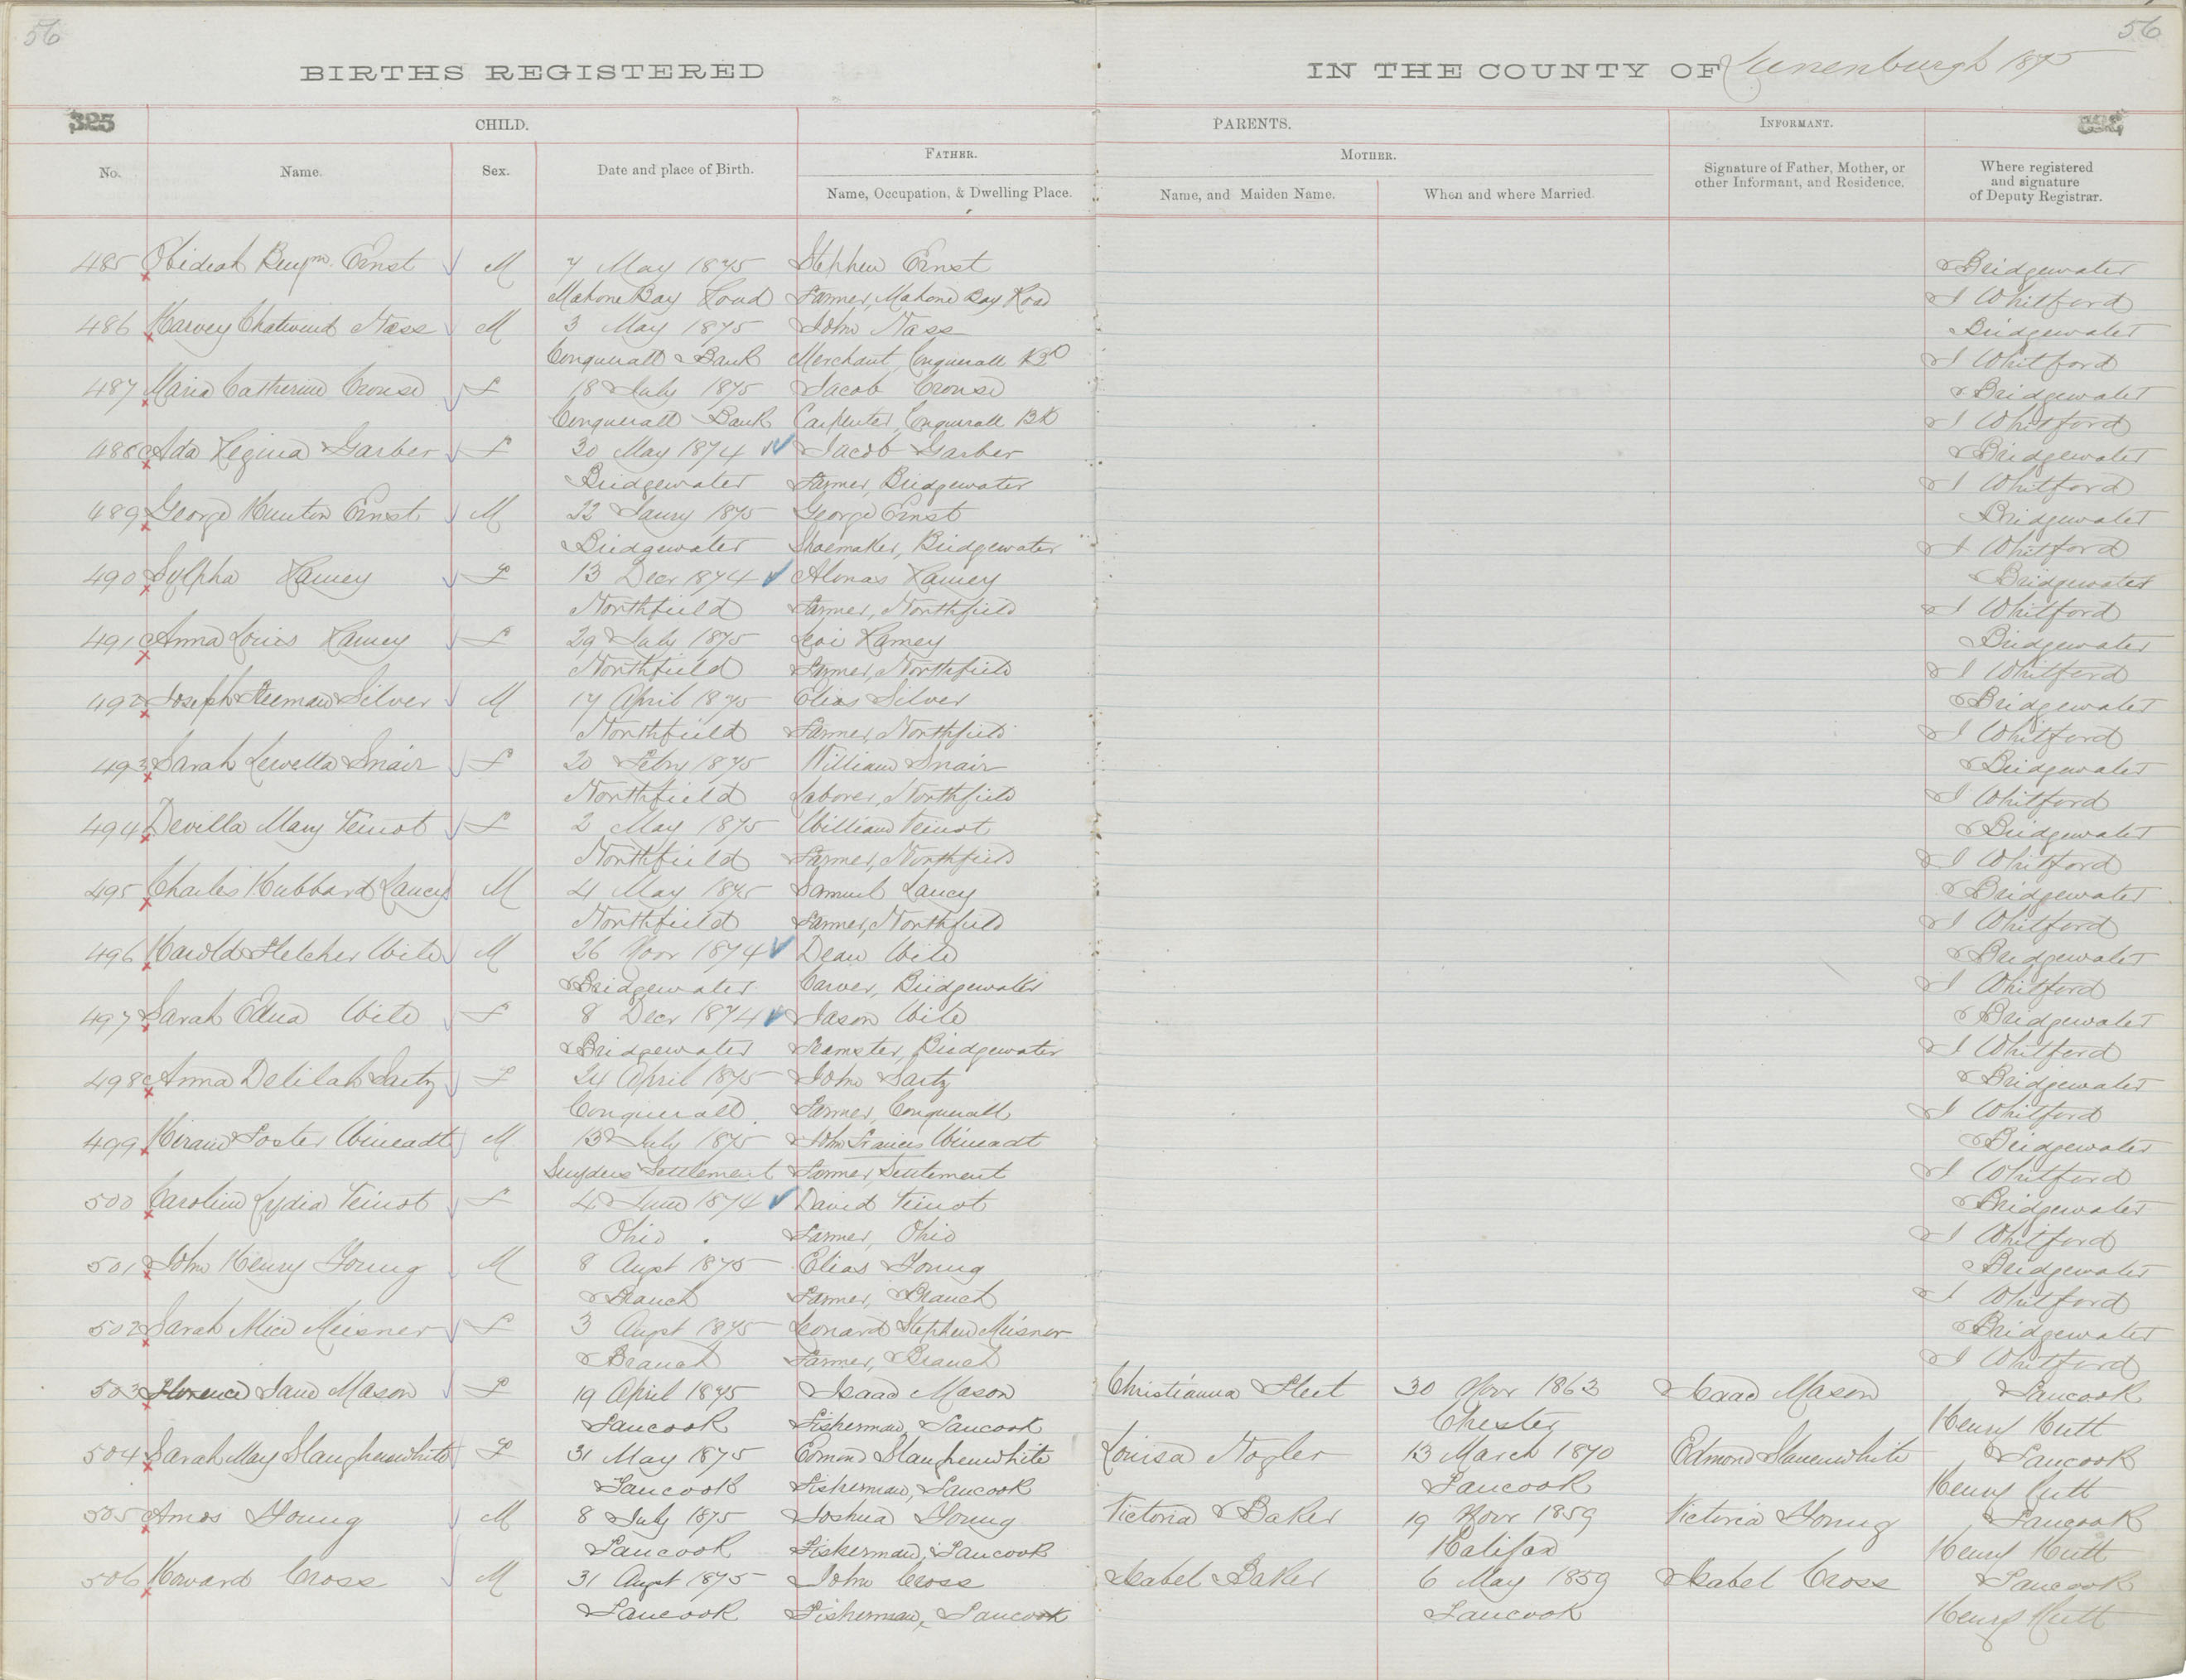 56
56
BIRTHS REGISTERED
IN THE COUNTY OF Lunenburgh 1875
325
CHILD.
PARENTS.
INFORMANT.
325
No.
Name.
Sex.
Date and place of Birth.
FATHER.
Name, Occupation, & Dwelling Place.
MOTHER.
Name, and Maiden Name.
When and where Married.
Signature of Father, Mother, or
other Informant, and Residence.
Where registered
and signature
of Deputy Registrar.
485 Obideah Benjm. Ernst M 7 May 1875 Stephen Ernst Bridgewater
Mahone Bay Road Farmer, Mahone Bay Road I Whitford
486 Harvey Chatwind Nass M 3 May 1875 John Nass Bridgewater
Conquerall Bank Merchant, Conquerall Bk I Whitford
487 Maria Catherine Crouse F 18 July 1875 Jacob Crouse Bridgewater
Conquerall Bank Carpenter, Conquerall Bk I Whitford
488 Ada Regina Garber F 30 May 1874 Jacob Garber Bridgewater
Bridgewater Farmer, Bridgewater I Whitford
489 George Hunton Ernst M 22 Jany 1875 George Ernst Bridgewater
Bridgewater Shoemaker, Bridgewater I Whitford
490 Sylpha Ramey F 13 Decr 1874 Alonas Ramey Bridgewater
Northfield Farmer, Northfield I Whitford
491 Anna Louis Ramey F 29 July 1875 Levi Ramey Bridgewater
Northfield Farmer, Northfield I Whitford
492 Joseph Freeman Silver M 17 April 1875 Elias Silver Bridgewater
Northfield Farmer, Northfield I Whitford
493 Sarah Lewella Snair F 20 Febry 1875 William Snair Bridgewater
Northfield Laborer, Northfield I Whitford
494 Devilla Mary Veinot F 2 May 1875 William Veinot Bridgewater
Northfield Farmer, Northfield I Whitford
495 Charles Hubbard Lancy M 4 May 1875 Samuel Lancy Bridgewater
Northfield Farmer, Northfield I Whitford
496 Harold Fletcher Wile M 26 Novr 1874 Dean Wile Bridgewater
Bridgewater Carver, Bridgewater I Whitford
497 Sarah Edna Wile F 8 Decr 1874 Jason Wile Bridgewater
Bridgewater Teamster, Bridgewater I Whitford
498 Anna Delilah Sartz F 24 April 1875 John Sartz Bridgewater
Conquerall Farmer, Conquerall I Whitford
499 Hiram Foster Wineadt M 13 July 1875 John Francis Wineadt Bridgewater
Snyders Settlement Farmer, Settlement I Whitford
500 Carolin Lydia Veinot F 4 June 1874 David Veinot Bridgewater
Ohio Farmer, Ohio I Whitford
501 John Henry Young M 8 Augst 1875 Elias Young Bridgewater
Branch Farmer, Branch I Whitford
502 Sarah Alice Meisner F 3 Augst 1875 Leonard Stephen Meisner Bridgewater
Branch Farmer, Branch I Whitford
503 Florence Jane Mason F 19 April 1875 Isaac Mason Christianna Fleet 30 Novr 1863 Isaac Mason Tancook
Tancook Fisherman, Tancook Chester Henry Hutt
504 Sarah May Slaughenwhite F 31 May 1875 Edmond Slaughenwhite Louisa Nogler 13 March 1870 Edmond Slauenwhite Tancook
Tancook Fisherman, Tancook Tancook Henry Hutt
505 Amos Young M 8 July 1875 Joshua Young Victoria Baker 19 Novr 1859 Victoria Young Tancook
Tancook Fisherman, Tancook Halifax Henry Hutt
506 Howard Cross M 31 Augst 1875 John Cross Isabel Baker 6 May 1859 Isabel Cross Tancook
Tancook Fisherman, Tancook Tancook Henry Hutt